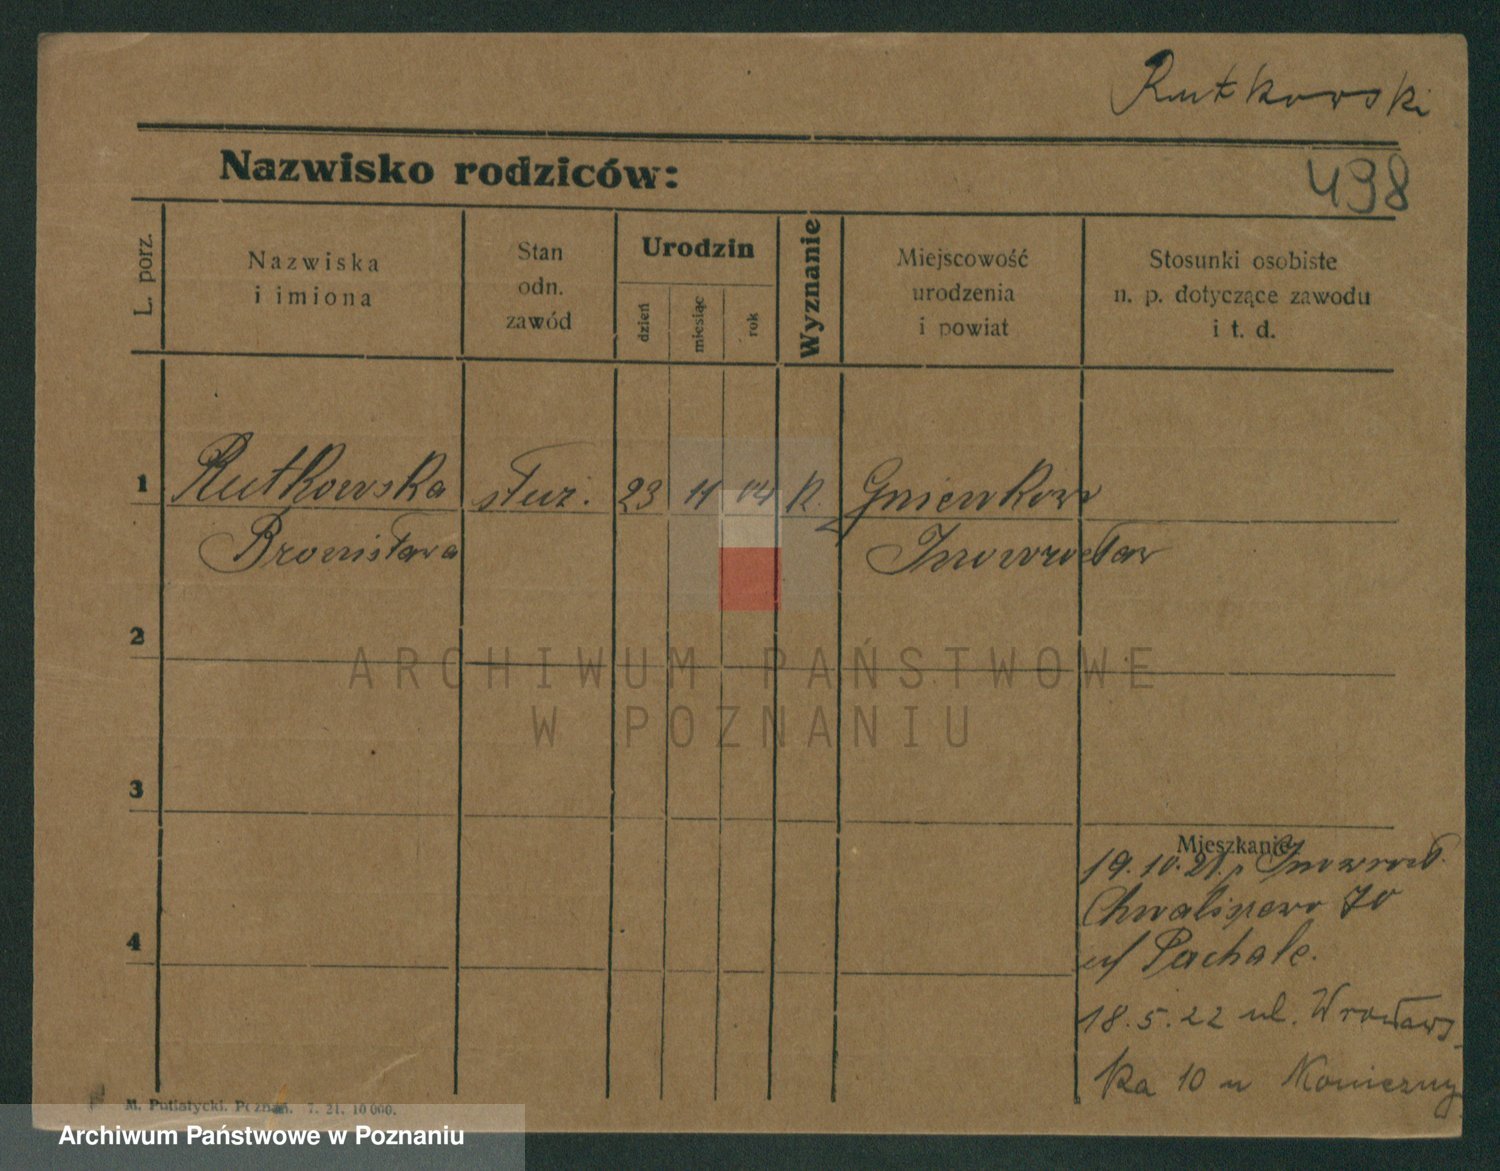 Rutkowski
Nazwisko rodziców:
498
L. porz.
Nazwiska
i imiona
Stan
odn.
zawód
Urodzin
dzień
miesiąc
rok
Wyznanie
Miejscowość
urodzenia
i powiat
Stosunki osobiste
n. p. dotyczące zawodu
i t. d.
1
Rutkowska
służ.
23
11
04
K.
Gniewkowo
Bronisława
Inowrocław
2
ARCHIWUM PAŃSTWOWE
W POZNANIU
3
Mieszkanie:
19.10.21. Inowrocł.
Chwaliszewo 70
u/ Pachale.
4
18.5.22 ul. Wrocławs-
ka 10 u Konieczny
M. Putiatycki. Poznań. 7. 21. 10 000.
Archiwum Państwowe w Poznaniu